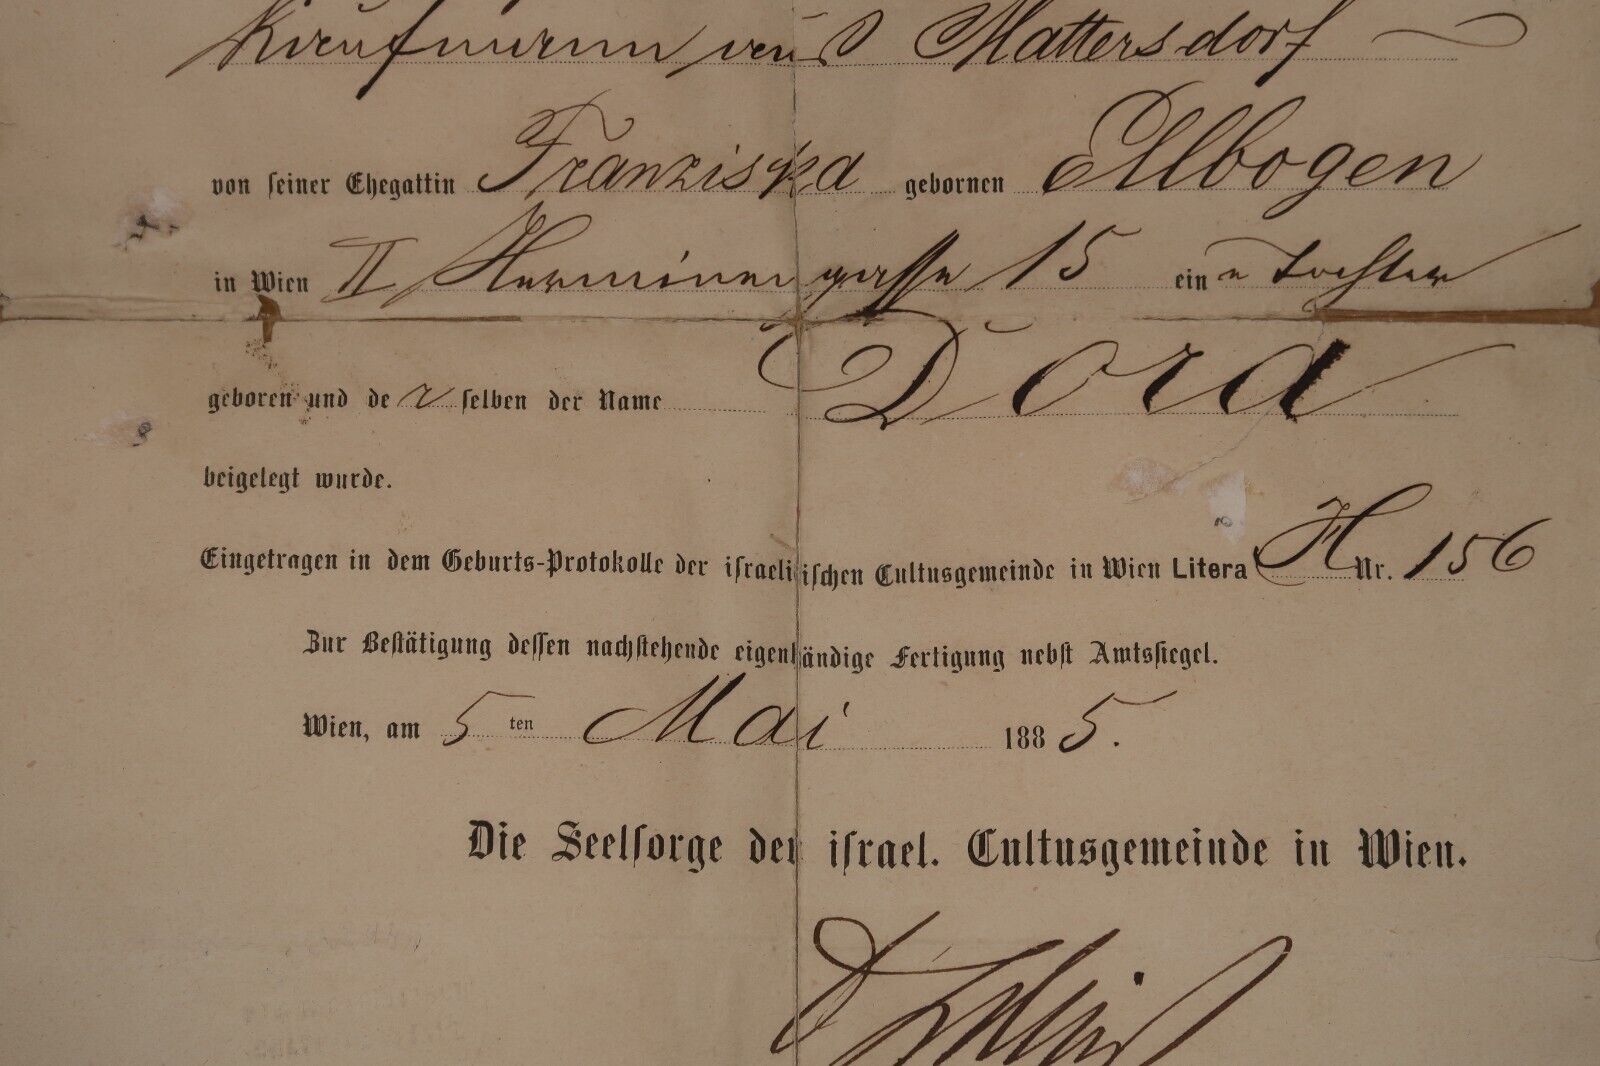 Kaufmann aus Mattersdorf
von seiner Ehegattin Franziska gebornen Ellbogen
in Wien II Herminengasse 15 eine Tochter
geboren und der selben der Name Dora
beigelegt wurde.
Eingetragen in dem Geburts-Protokolle der israelitischen Cultusgemeinde in Wien Litera H Nr. 156
Zur Bestätigung dessen nachstehende eigenhändige Fertigung nebst Amtssiegel.
Wien, am 5 ten Mai 1885.
Die Seelsorge der israel. Cultusgemeinde in Wien.